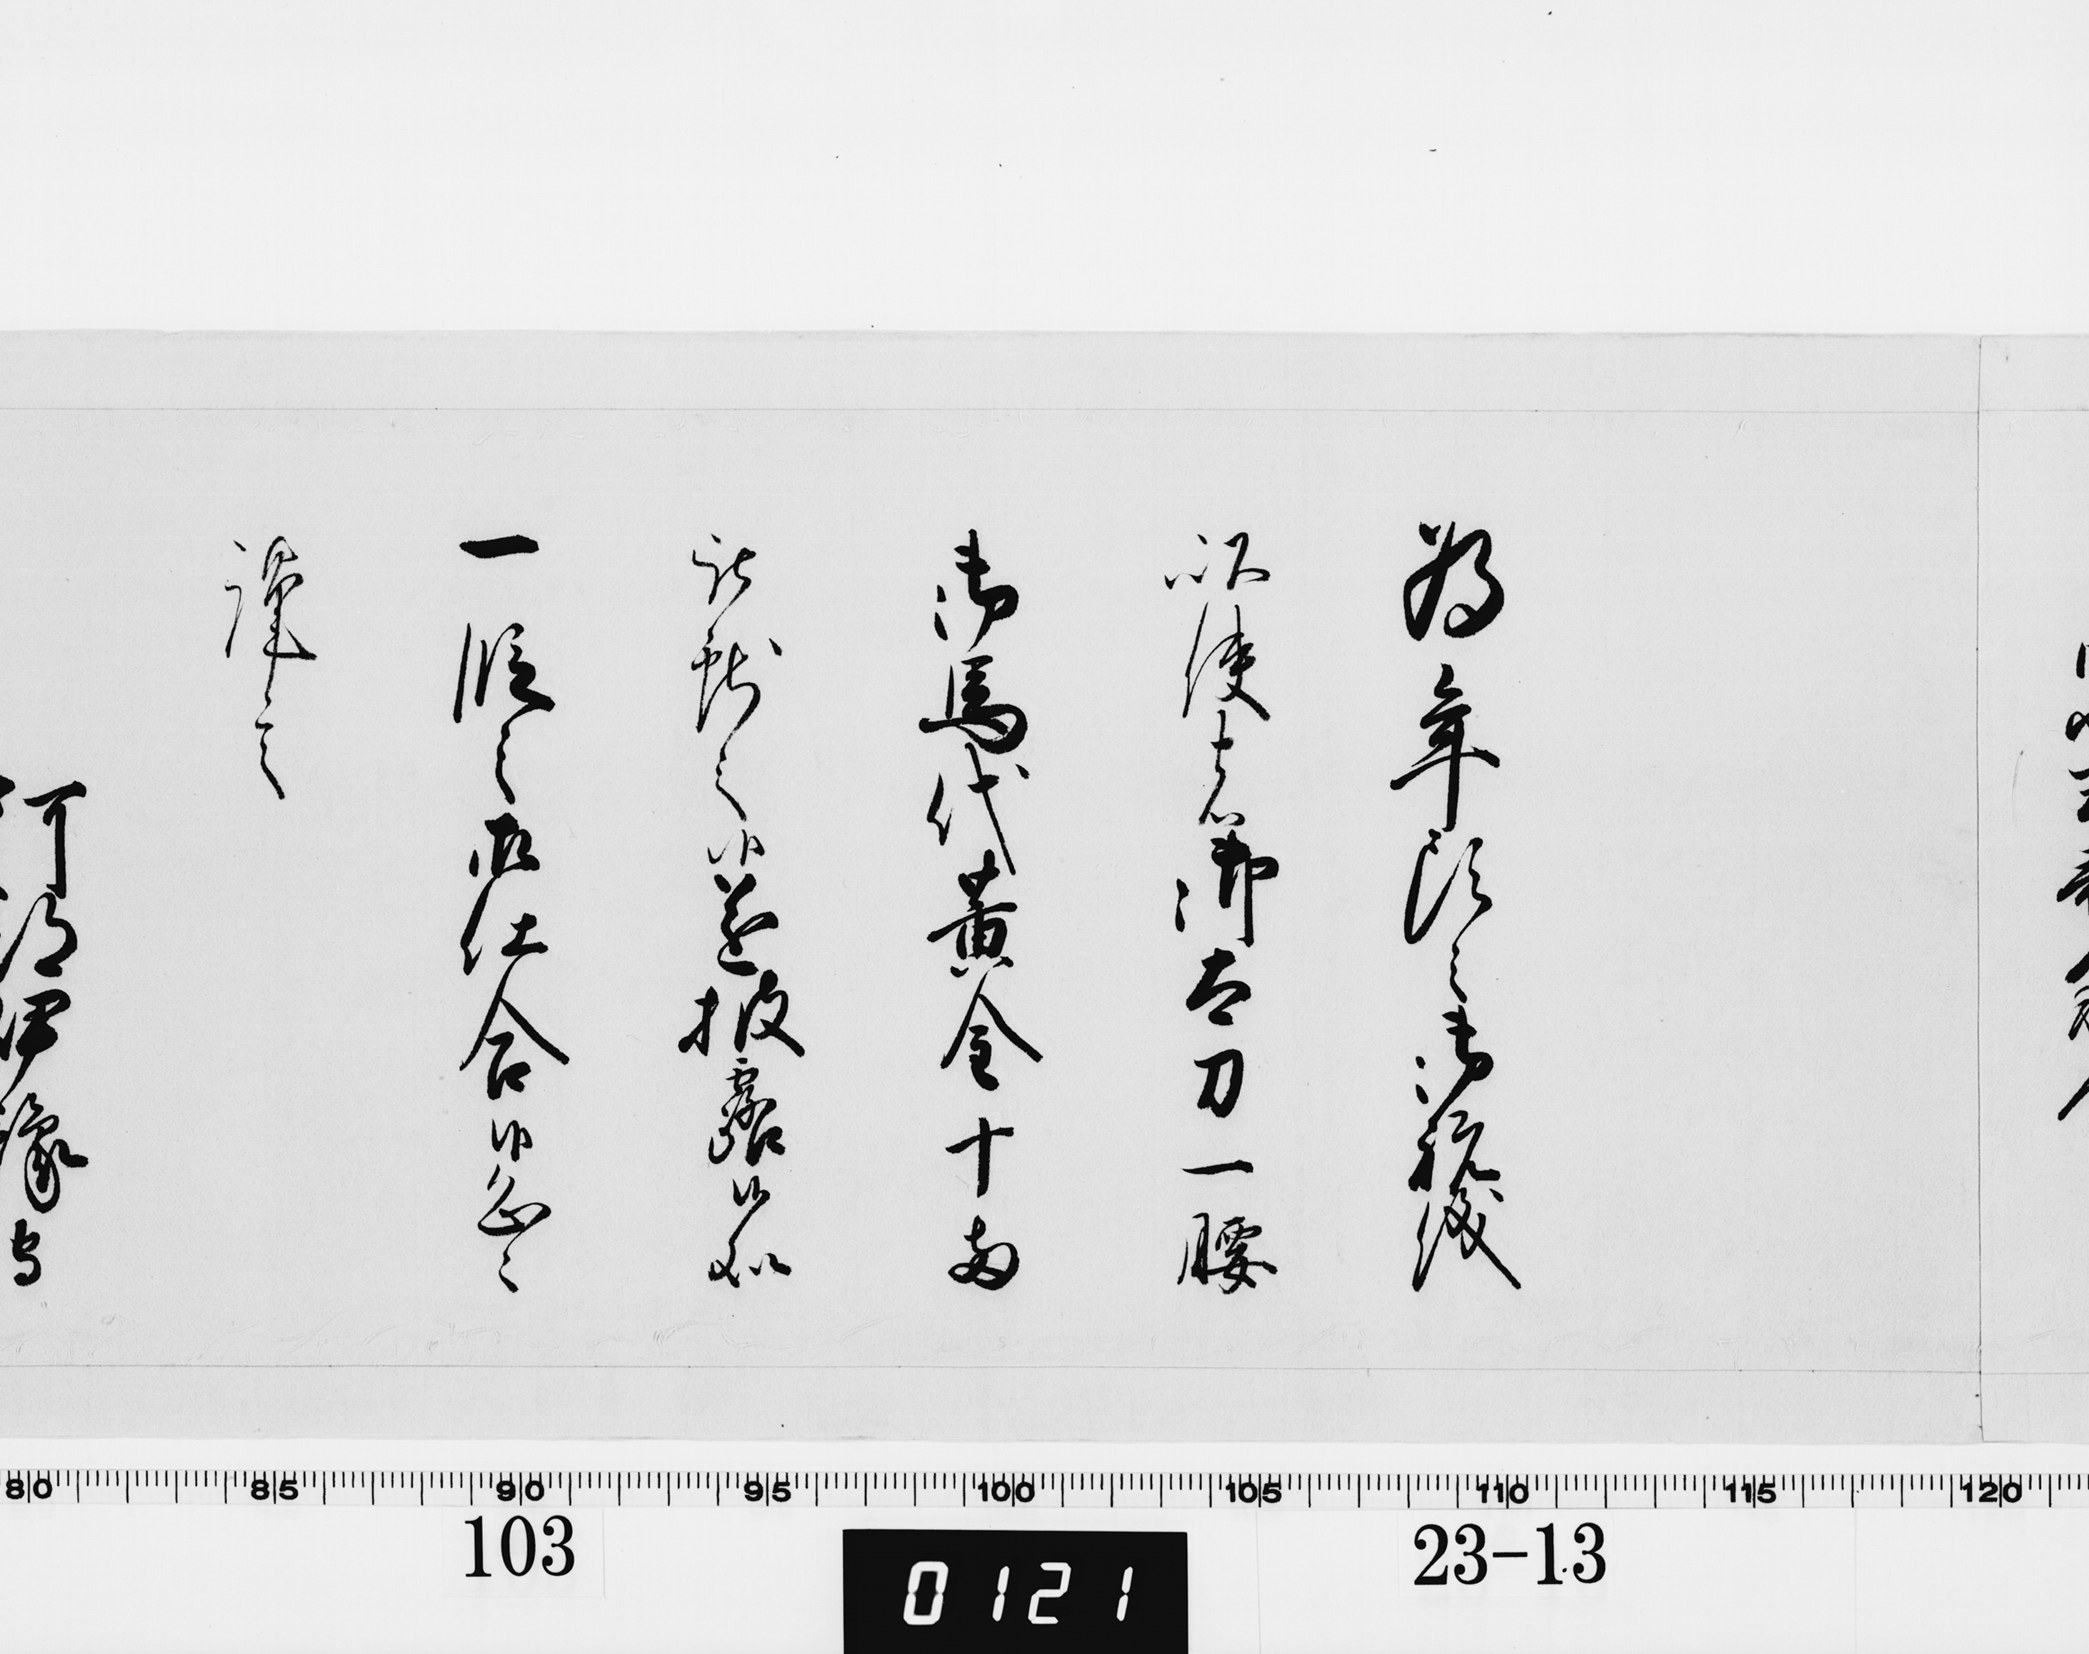 為年頭之御祝儀
以使者御太刀一腰
御馬代黄金十両
被献之候遂披露候処
一段之御仕合候恐々
謹言
阿部伊豫守
80 85 90 95 100 105 110 115 120
103
0121
23-13